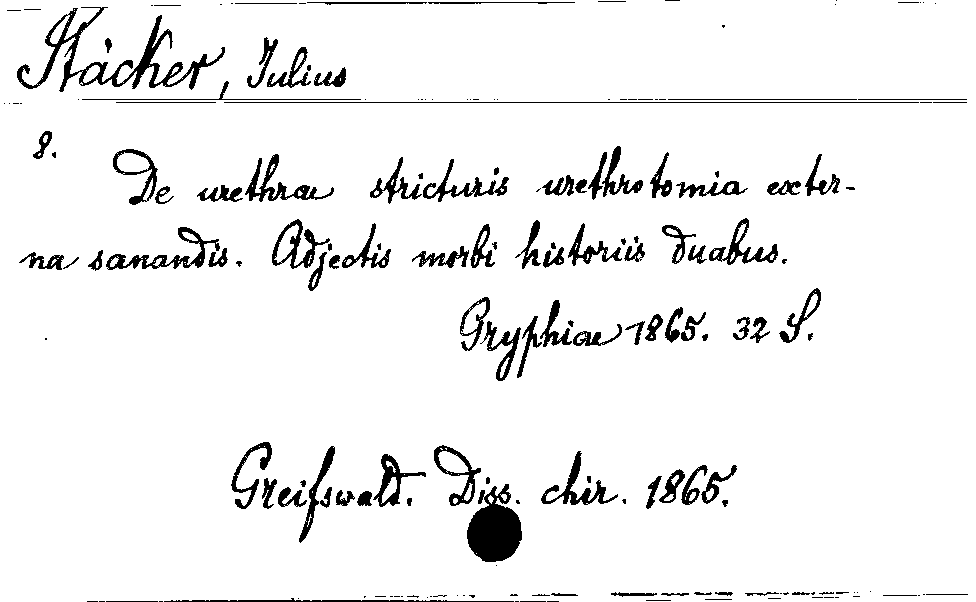 Stäcker, Julius
8.
De urethrae stricturis urethrotomia exter-
na sanandis. Adjectis morbi historiis duabus.
Gryphiae 1865. 32 S.
Greifswald. Diss. chir. 1865.